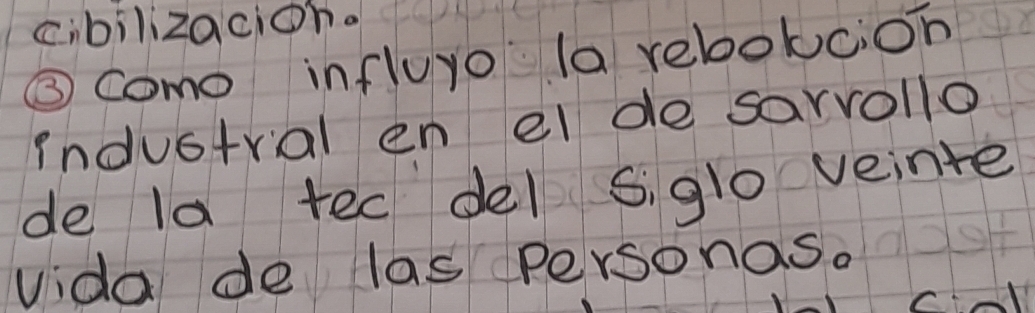 cibilizacion.
③ como influyo la rebolución
industrial en el de sarrollo
de la tec del siglo veinte
vida de las personas.